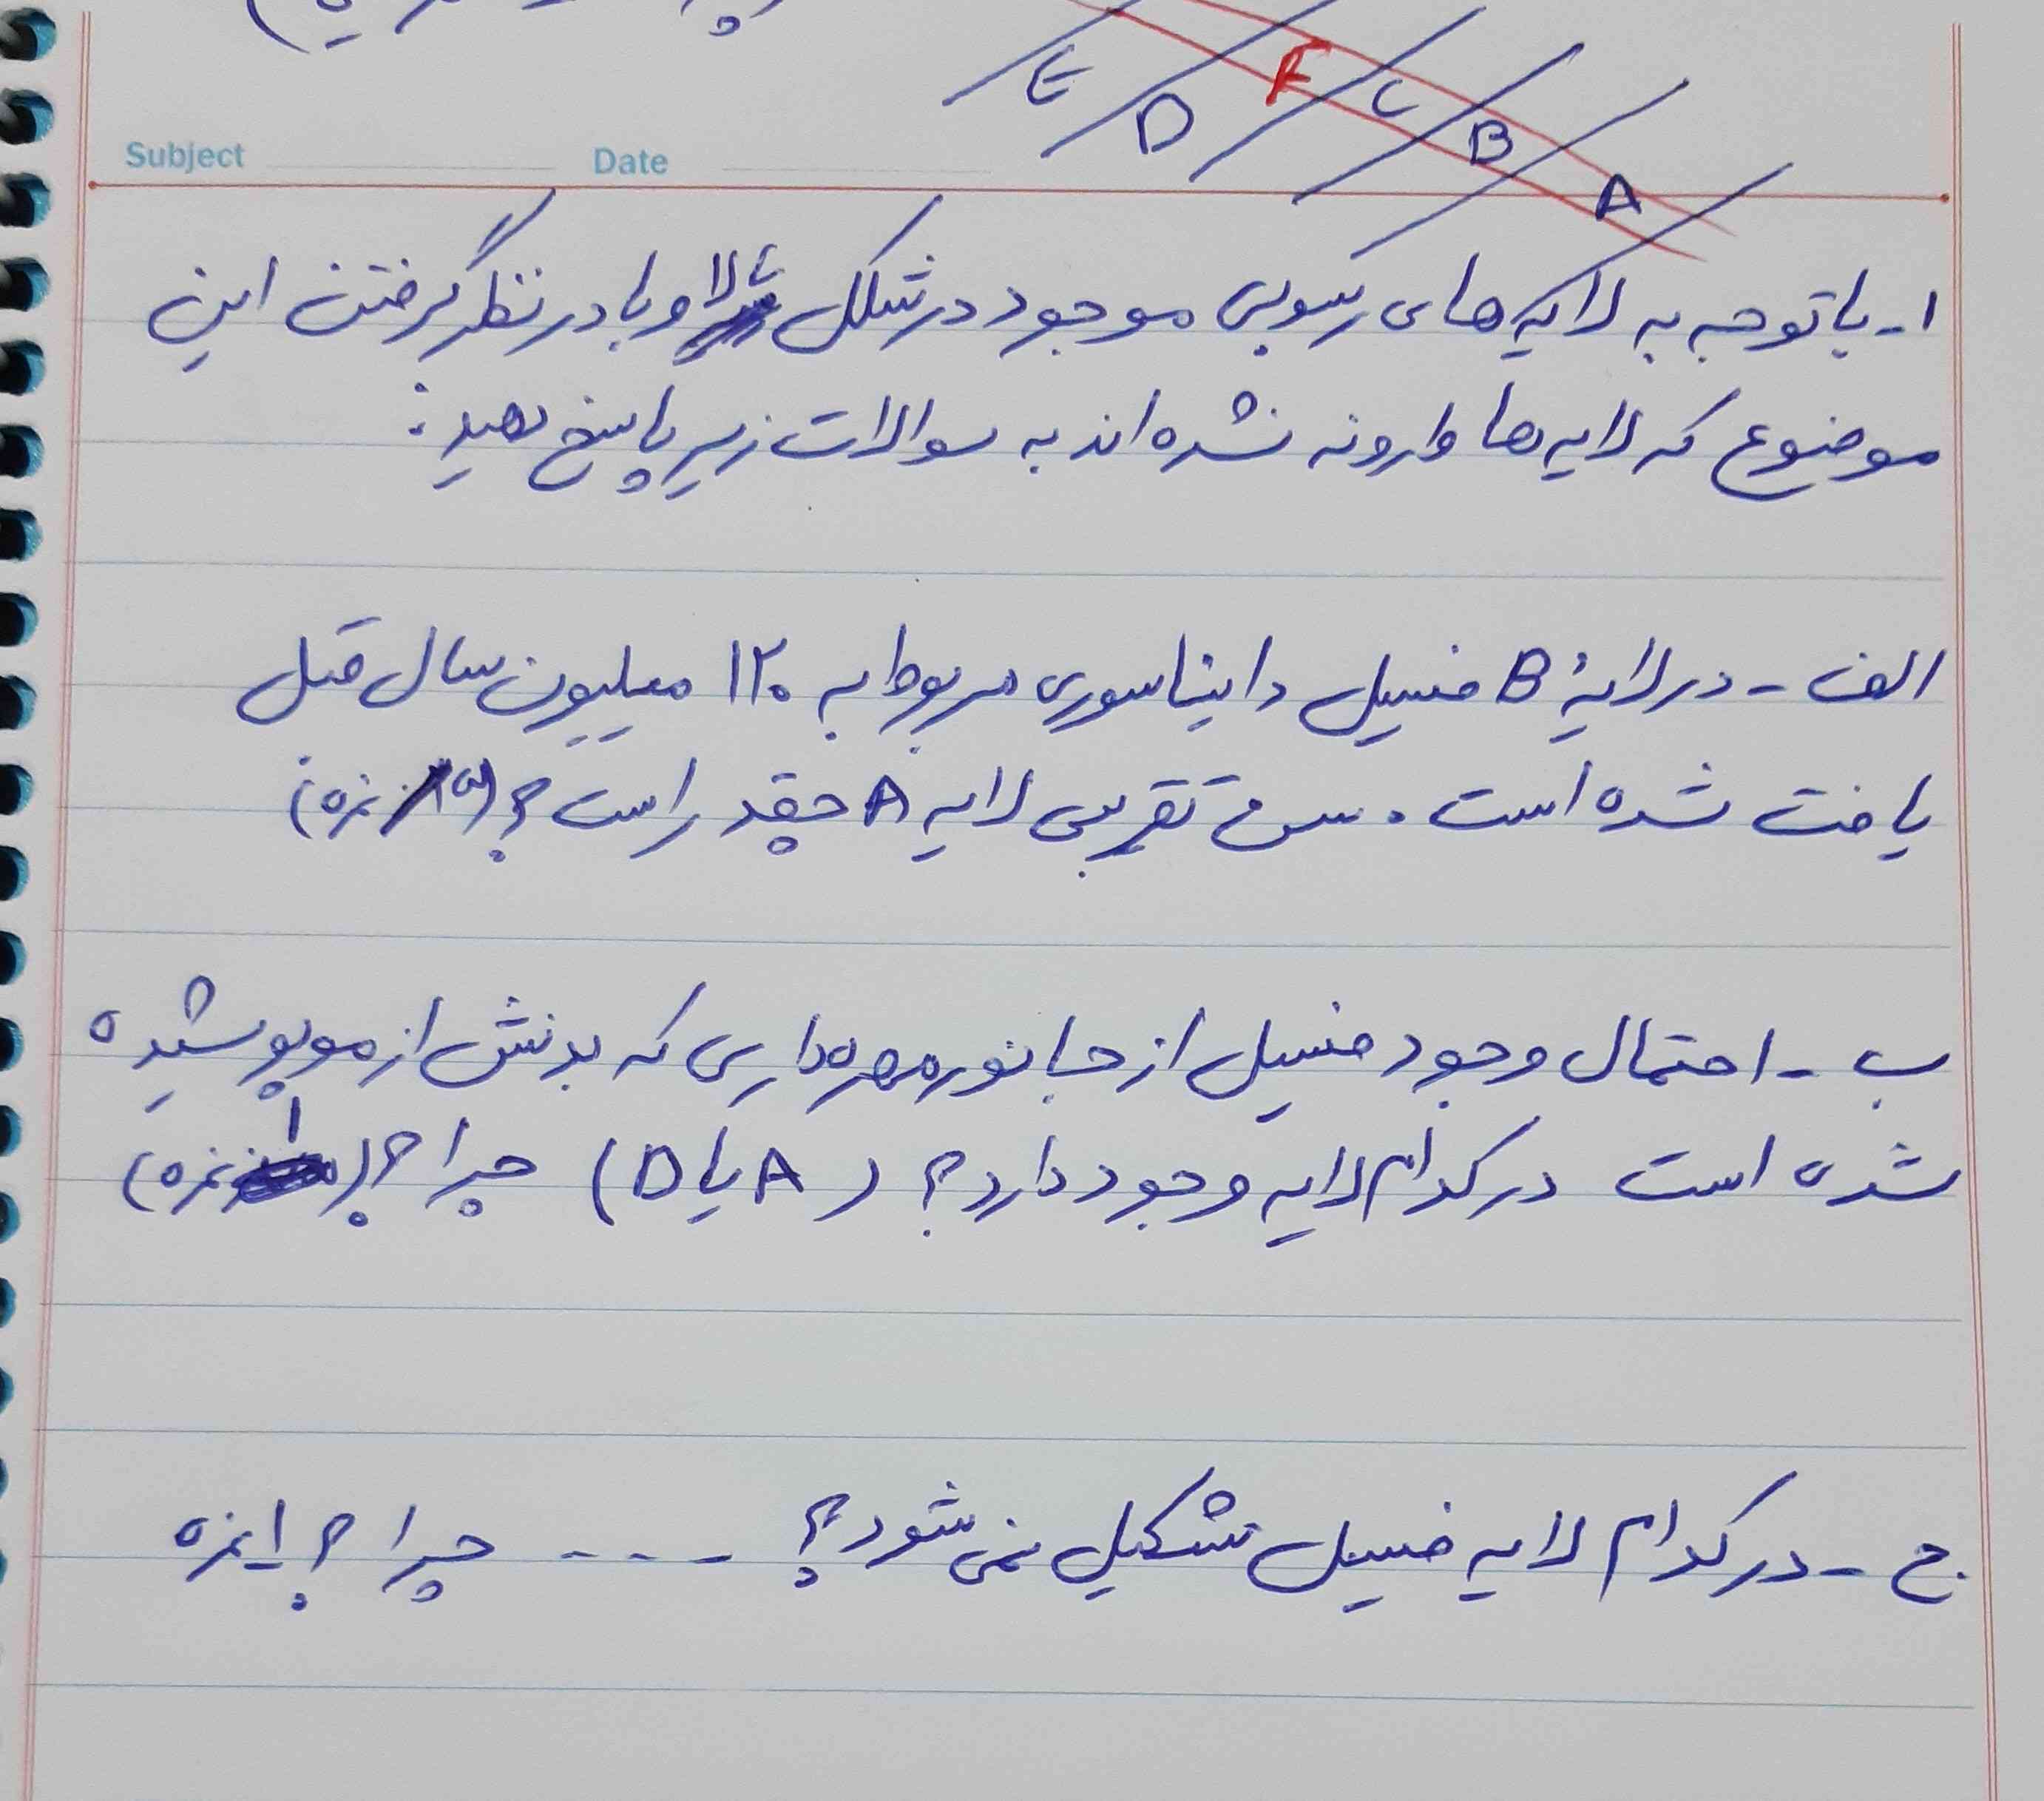 E D F C B A
Subject Date
۱- با توجه به لایه های رسوبی موجود در شکل بالا و با در نظر گرفتن این
موضوع که لایه ها وارونه نشده اند به سوالات زیر پاسخ دهید:
الف - در لایهٔ B فسیل دایناسوری مربوط به ۱۲۰ میلیون سال قبل
یافت شده است. سن تقریبی لایه A چقدر است؟ ( نمره)
ب - احتمال وجود فسیل از جانور مهره‌داری که بدنش از مو پوشیده
شده است در کدام لایه وجود دارد؟ (A یا D) چرا؟ (۱ نمره)
ج - در کدام لایه فسیل تشکیل نمی شود؟ ---- چرا؟ ۱ نمره